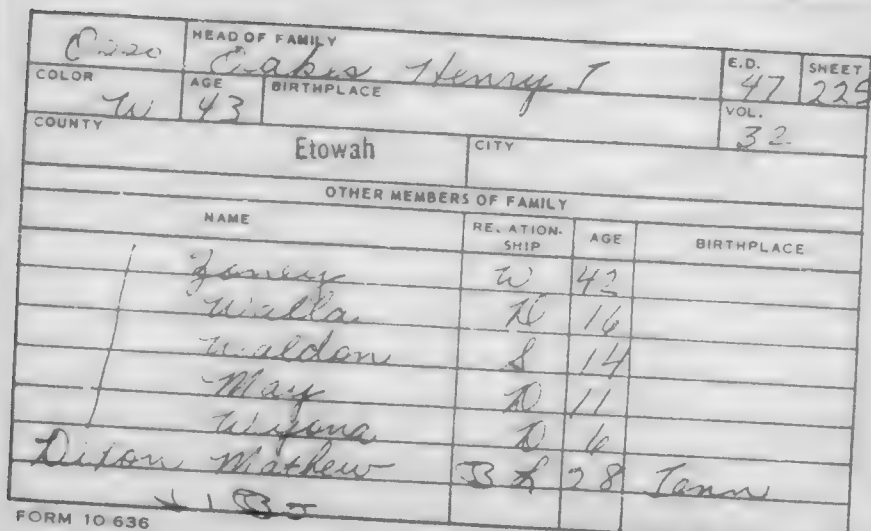 HEAD OF FAMILY
Oakes Henry I
E.D. 47
SHEET 225
COLOR W
AGE 43
BIRTHPLACE
VOL. 32
COUNTY Etowah
CITY
OTHER MEMBERS OF FAMILY
NAME RELATION-SHIP AGE BIRTHPLACE
W 42
Walla D 16
Waldon S 14
May D 11
D 6
Dixon Mathew B L 28 Tann
FORM 10-636